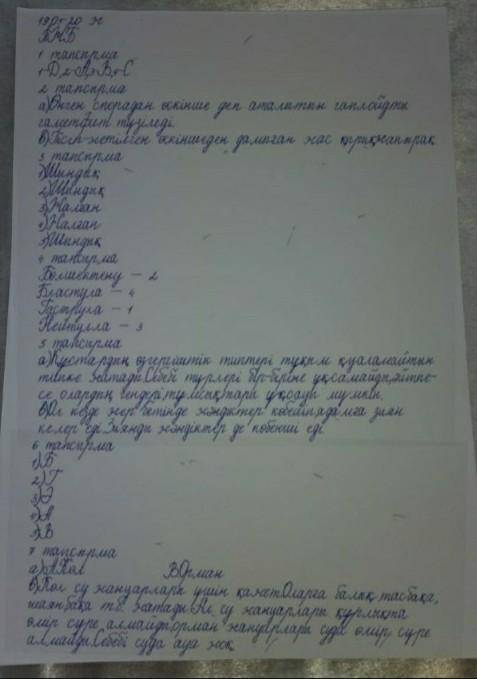 19.01.20 ж
БЖБ
1 тапсырма
1-Д 2-А 3-В 4-С
2 тапсырма
а) Өнген спорадан өскінше деп аталатын гаплойдты
гаметофит түзіледі.
в) Пісіп-жетілген өскіншеден дамыған жас қырыққұлақ
3 тапсырма
1) Шындық
2) Шындық
3) Жалған
4) Жалған
5) Шындық
4 тапсырма
Бөлшектену – 2
Бластула – 4
Гаструла – 1
Нейрула – 3
5 тапсырма
а) Құстардың өзгергіштік типтері тұқым қуаламайтын
типке жатады. Себебі түрлері бір-біріне ұқсамайды, әйтпе-
се олардың гендері, туыстықтары ұқсауы мүмкін.
в) Ол кезде жер бетінде жәндіктер көбейіп адамға зиян
келер еді. Зиянды жәндіктер де көбейші еді.
6 тапсырма
1) Б
2) Г
3) Ә
4) А
5) В
7 тапсырма
а) АКөл В Орман
в) Көл су жануарлары үшін қажет. Оларға балық, тасбақа,
шаян, бақа т.б. жатады. Не су жануарлары құрлықта
өмір сүре алмайды, орман жануарлары суда өмір сүре
алмайды. Себебі суда ауа жоқ.